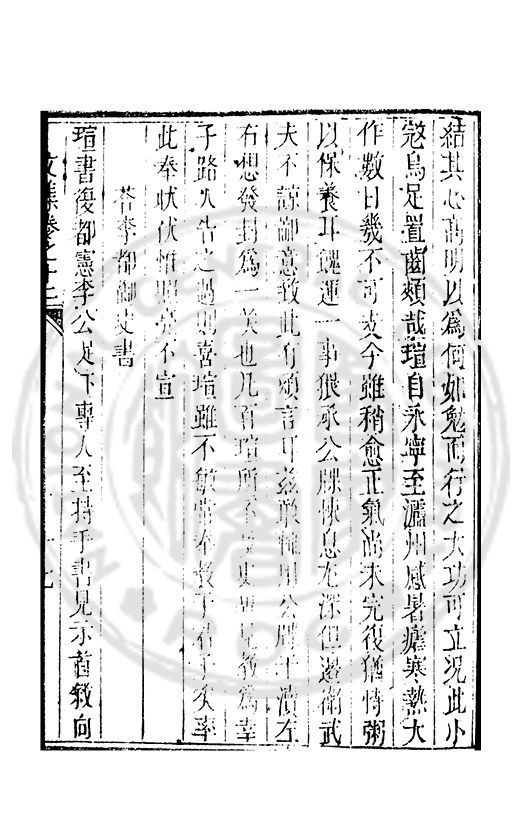 結其心高明以爲何如勉而行之大功可立況此小
宼烏足置齒頰哉瑄自永寧至瀘州感暑瘧寒熱大
作數日幾不可支今雖稍愈正氣尚未完復猶恃粥
以保養耳餽運一事猥承公牒悚息尤深但邊衛武
夫不諒鄙意致此有煩言耳兹敢輙用公牘干瀆左
右想發封爲一笑也凡百瑄所不見教爲幸
子路人告之過則喜瑄雖不敏嘗奉教于君子矣率
此奉狀伏惟照亮不宣
答李都御史書
瑄書復都憲李公足下專人至捧手書見示首敘向
文集卷之十二
十九